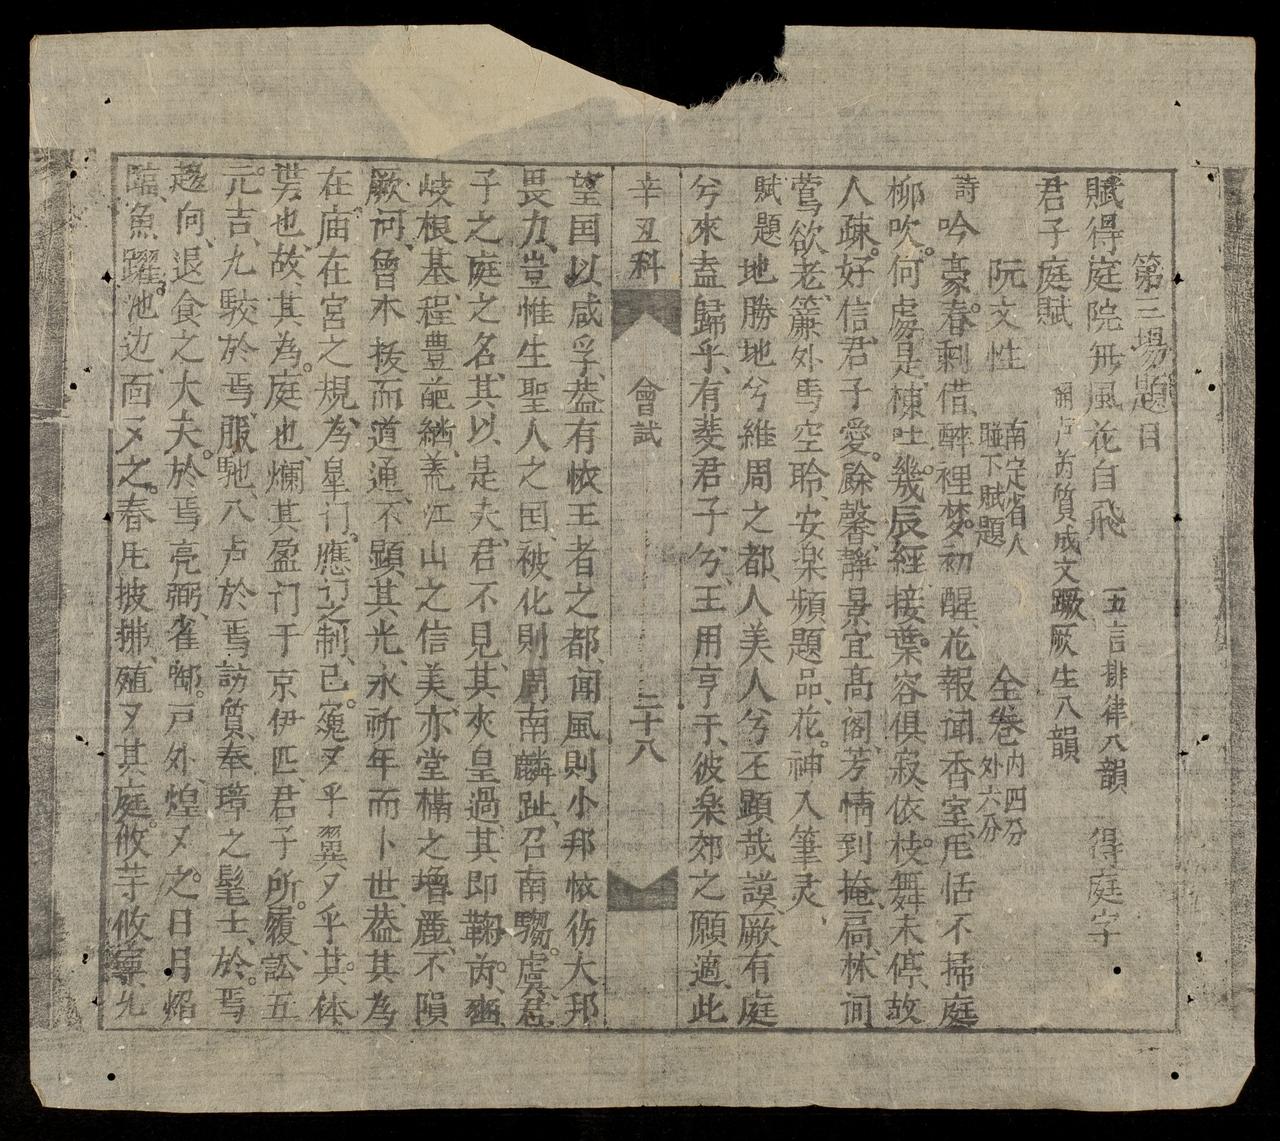 第三場題目
賦得庭院無風花自飛 五言排律八韻 得庭字
君子庭賦 質成文蹶厥生八韻
阮文性 南定省人 全卷 内四分 外六分
賦下
詩吟豪春剩借醉裡梦初醒花報闻香室帘恬不掃庭
柳吹何處是棟吐幾辰經接葉容俱寂依枝舞未停故
人疎好信君子愛餘馨靜景宜高阁芳情到掩扃林间
鶯欲老簾外馬空聆安楽頻題品花神入筆灵
賦題地勝地兮維周之都人美人兮丕顯哉謨厥有庭
兮來盍歸乎有斐君子兮王用亨于彼楽郊之願適此
辛丑科 會試 二十八
望国以咸孚盖有恢王者之都闻風則小邦恢仿大邦
畏力豈惟生聖人之国被化則周南麟趾召南騶虞君
子之庭之名其以是夫君不見其夾皇過其即鞫芮
岐根基程豊葩羌江山之信美亦堂構之增麗不隕
厥问曾木拔而道通不顯其光永祈年而卜世盖其為
在庙在宮之規為皐门應门之制已 又乎翼又乎其体
势也故其為庭也爛其盈门于京伊匹君子所履訟五
元吉九駮於焉服馳八占於焉訪質奉璋之髦士於焉
趨向退食之大夫於焉亮弼雀啣戸外煌又之日月熖
臨魚躍池边面又之春 披拂殖又其庭攸芋攸寧允